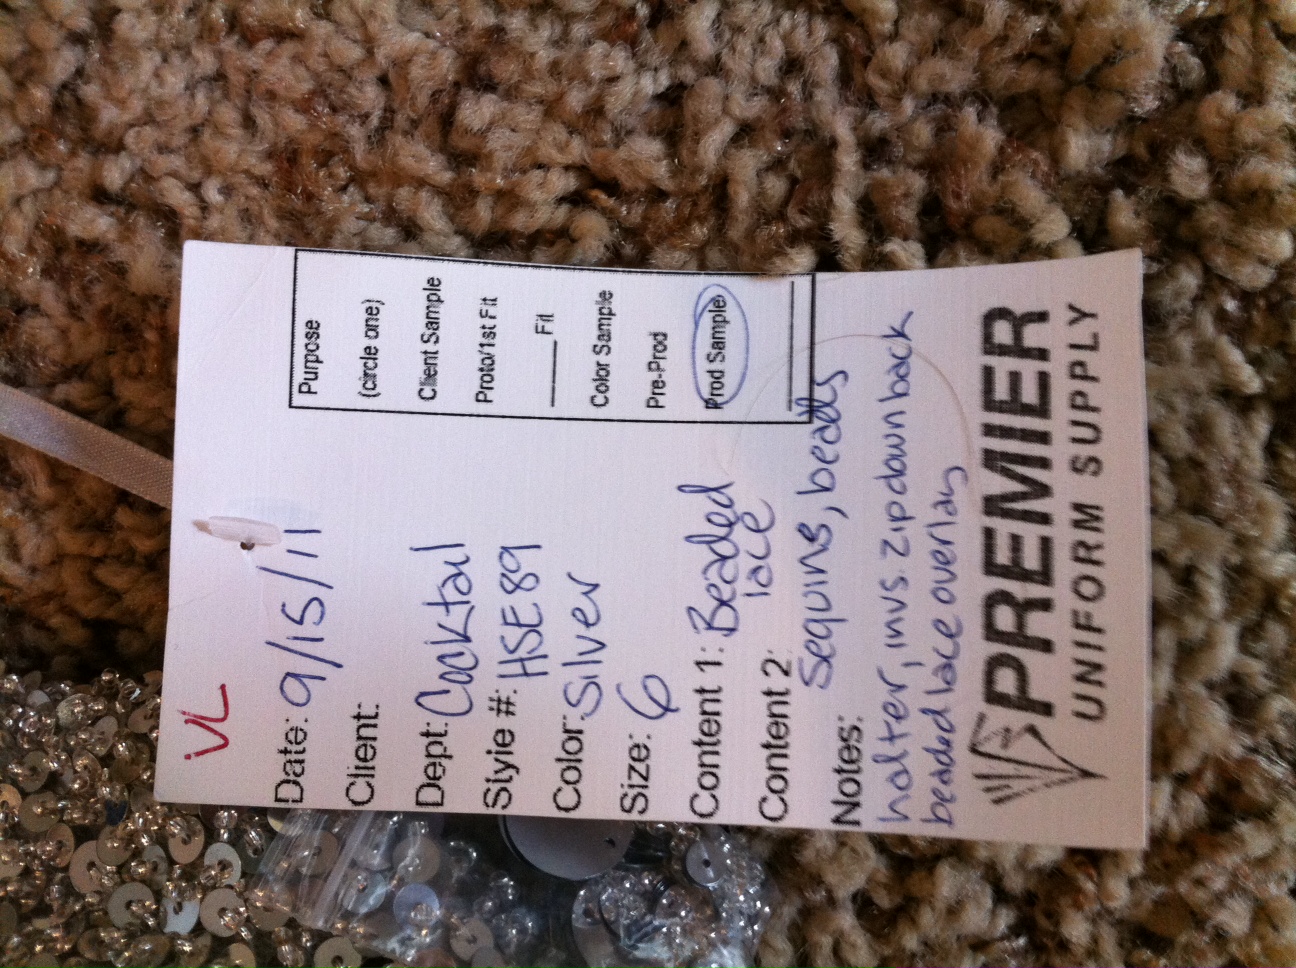 VL
Date: 9/15/11
Client:
Dept: Cocktail
Style #: HSE89
Color: Silver
Size: 6
Content 1: Beaded
lace
Content 2:
sequins, beads
Notes:
halter, invs. zip down back
beaded lace overlay
Purpose
(circle one)
Client Sample
Proto/1st Fit
______ Fit
Color Sample
Pre-Prod
Prod Sample
PREMIER
UNIFORM SUPPLY